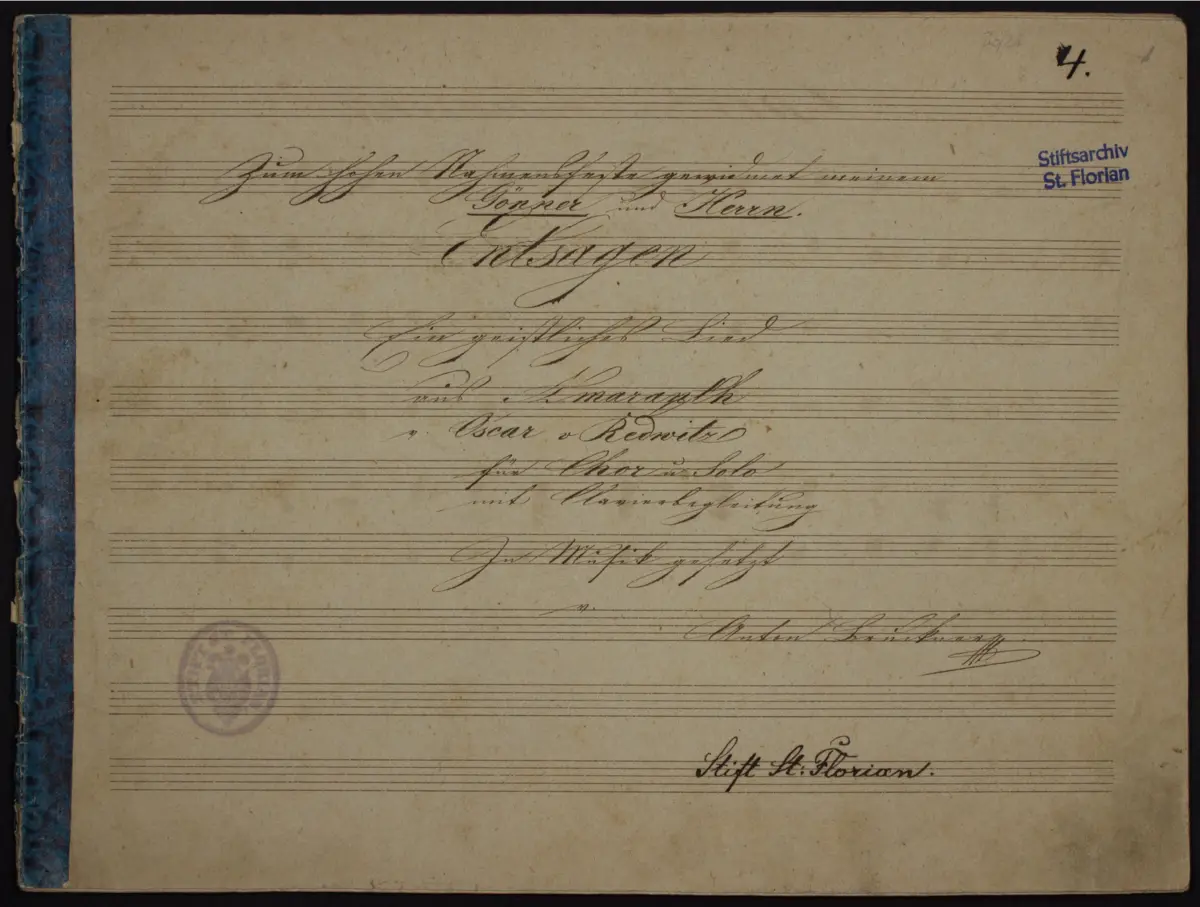 4.
Stiftsarchiv
St. Florian
Zum hohen Nahmensfeste gewidmet meinem
Gönner und Herrn.
Entsagen
Ein geistliches Lied
aus Amaranth
v. Oscar v Redwitz
für Chor u Solo
mit Clavierbegleitung
In Musik gesetzt
v.
Anton Bruckner
STIFT ST. FLORIAN
Stift St: Florian.